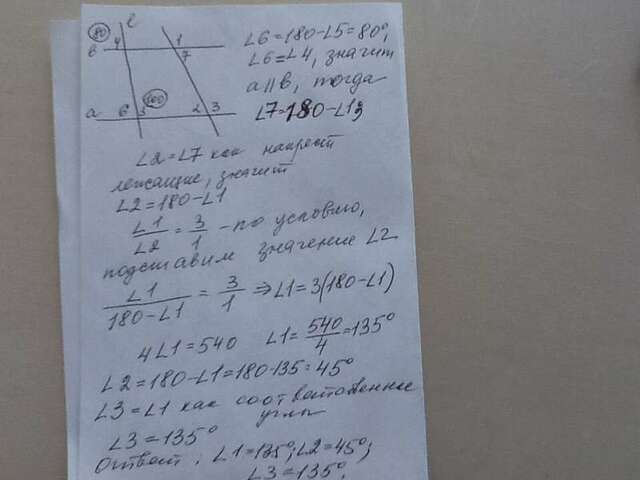 80 l
в 4 1
7
∠6=180-∠5=80°,
∠6=∠4, значит
a||в, тогда
∠7=180-∠1,
а 6 5 100 2 3
∠2=∠7 как накрест
лежащие, значит
∠2=180-∠1
∠1/∠2 = 3/1 - по условию,
подставим значение ∠2
∠1/(180-∠1) = 3/1 ⇒ ∠1=3(180-∠1)
4∠1=540 ∠1=540/4=135°
∠2=180-∠1=180-135=45°
∠3=∠1 как соответственные
углы
∠3=135°
Ответ: ∠1=135°; ∠2=45°;
∠3=135°.